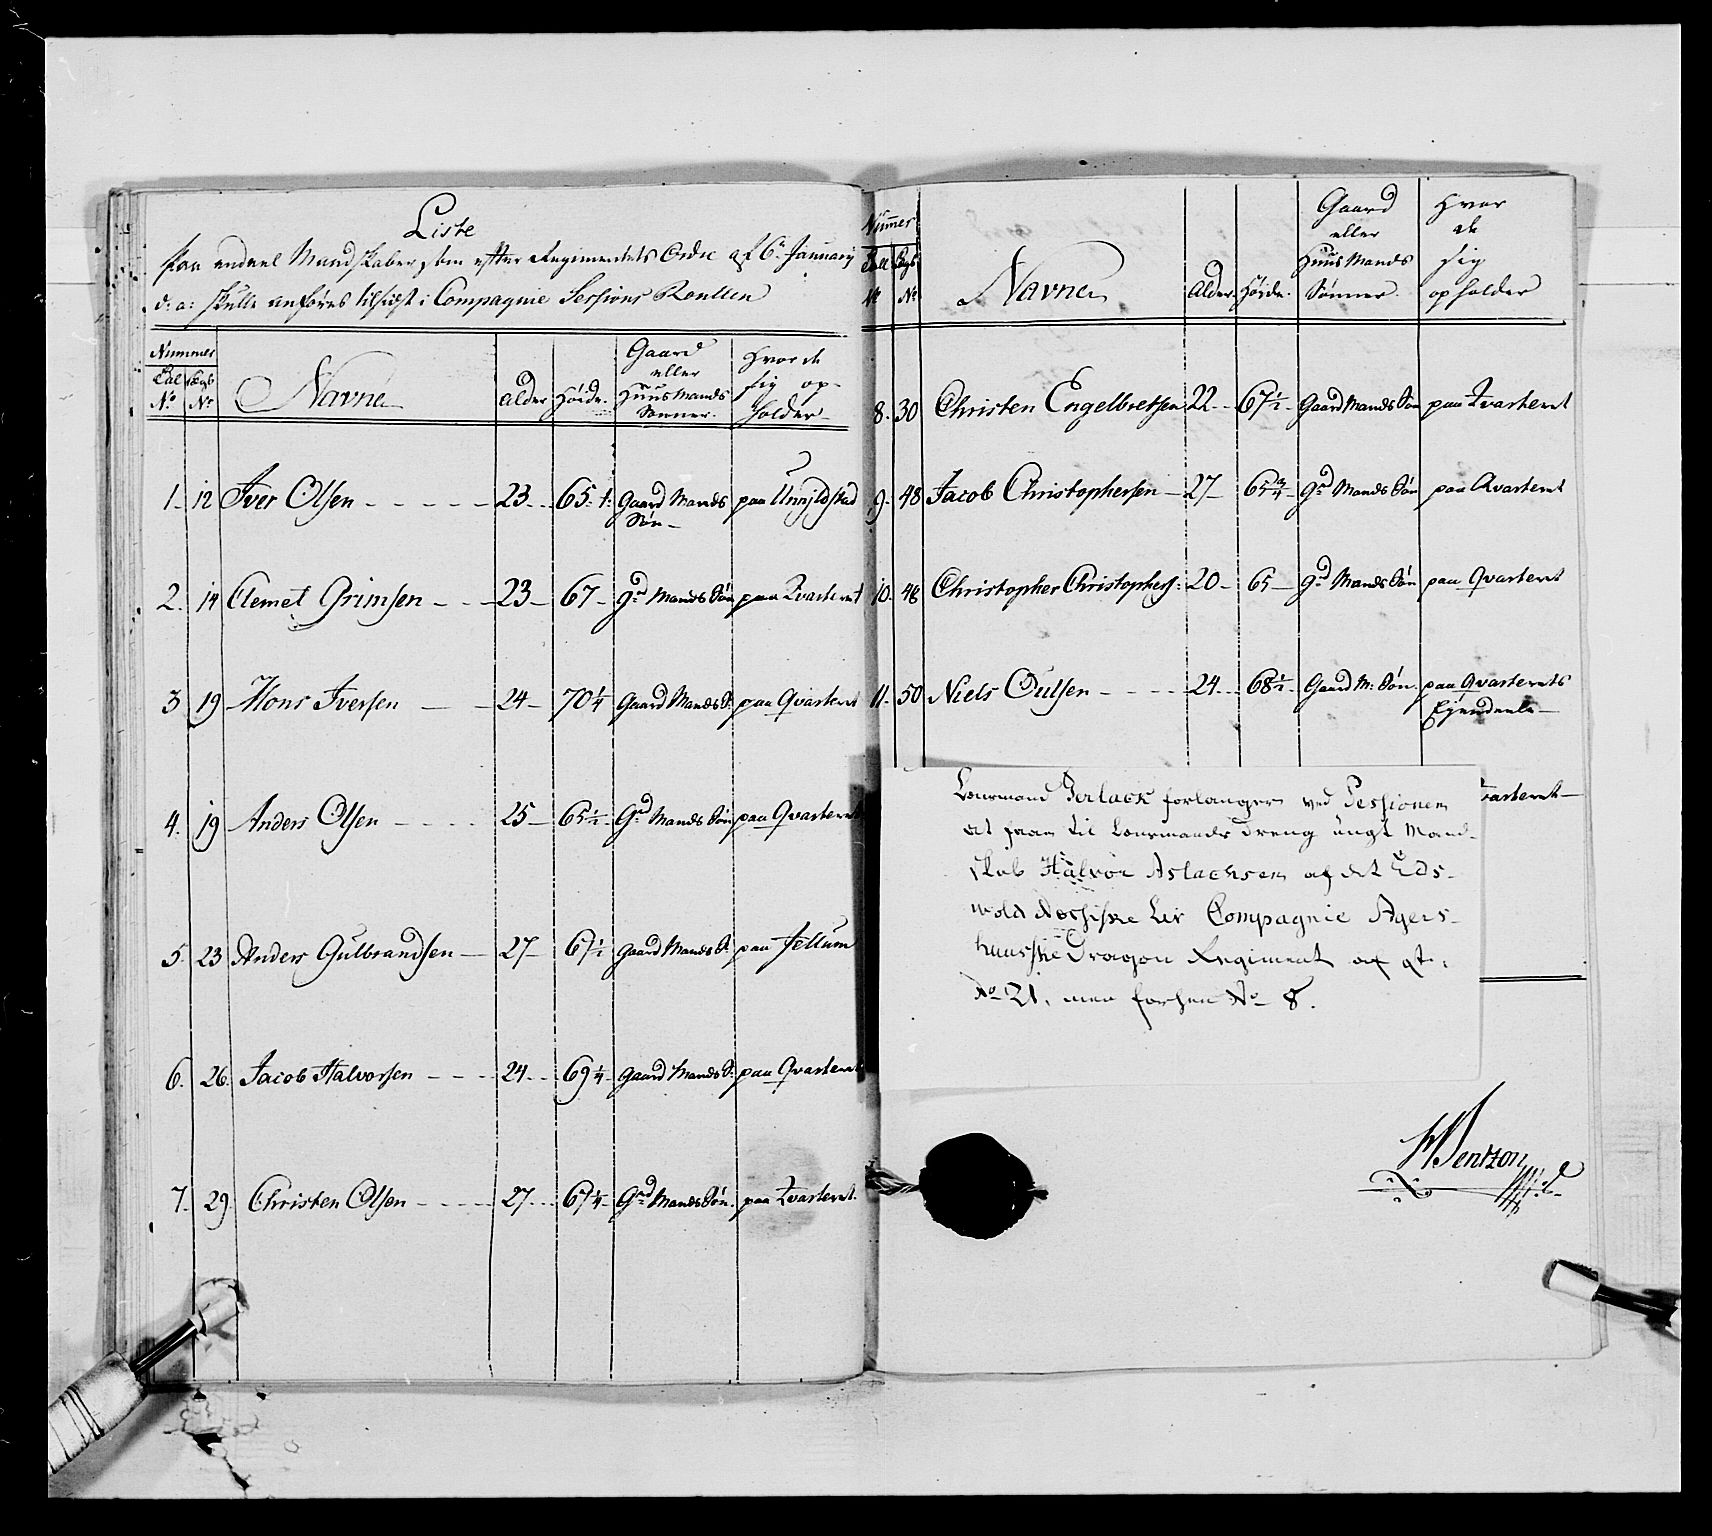 Liste
paa endeel Mandskaber, som efter Regimentets Ordre af 6te January
d: a: skulle anføres tilsidst i Compagnie Sessions Roullen
Nummer
Navne
Alder
Høide
Gaard
eller
Huusmands
Sønner
Hvor de
sig op-
holder
Tal
No
Lægs
No
1. 12 Iver Olsen 23 65 1: Gaard Mands Søn paa
2. 14 Clemet Grimsen 23 67 Gd Mands Søn paa Qvarteret
3 19 Hans Iversen 24 70 1/4 Gaard Mands S. paa Qvarteret
4. 19 Anders Olsen 25 65 1/2 Gd Mands Søn paa Qvarteret
5. 23 Anders Gulbrandsen 27 67 1/2 Gaard Mands S. paa Jellum
6. 26 Jacob Halvorsen 24 69 1/4 Gaard Mands S. paa Qvarteret
7. 29 Christen Olsen 27 67 1/4 Gd Mands Søn. paa Qvarteret.
Nummer
Tal
No
Lægs
No
Navne
Alder
Høide
Gaard
eller
Huus Mands
Sønner
Hvor
de
sig
opholder
8. 30 Christen Engelbretsen 22 67 1/2 Gaard Mands Søn paa Qvarteret
9. 48 Jacob Christophersen 27 65 3/4 Gd Mands Søn paa Qvarteret
10. 48 Christopher Christophers: 20 65 Gd Mands Søn paa Qvarteret
11. 50 Niels Oulsen 24 68 1/2 Gaard M: Søn. paa Qvarterets
Ejendeele
varteret
Lensmand forlanger ved Sessionen
at faae til Lensmands Dreng ungt Mand-
skab Halvor Aslachsen af det Eds-
wold Nessiske Liv Compagnie Agers-
huusiske Dragon Regiment af
No 21, men forhen No 8.
Bentzon